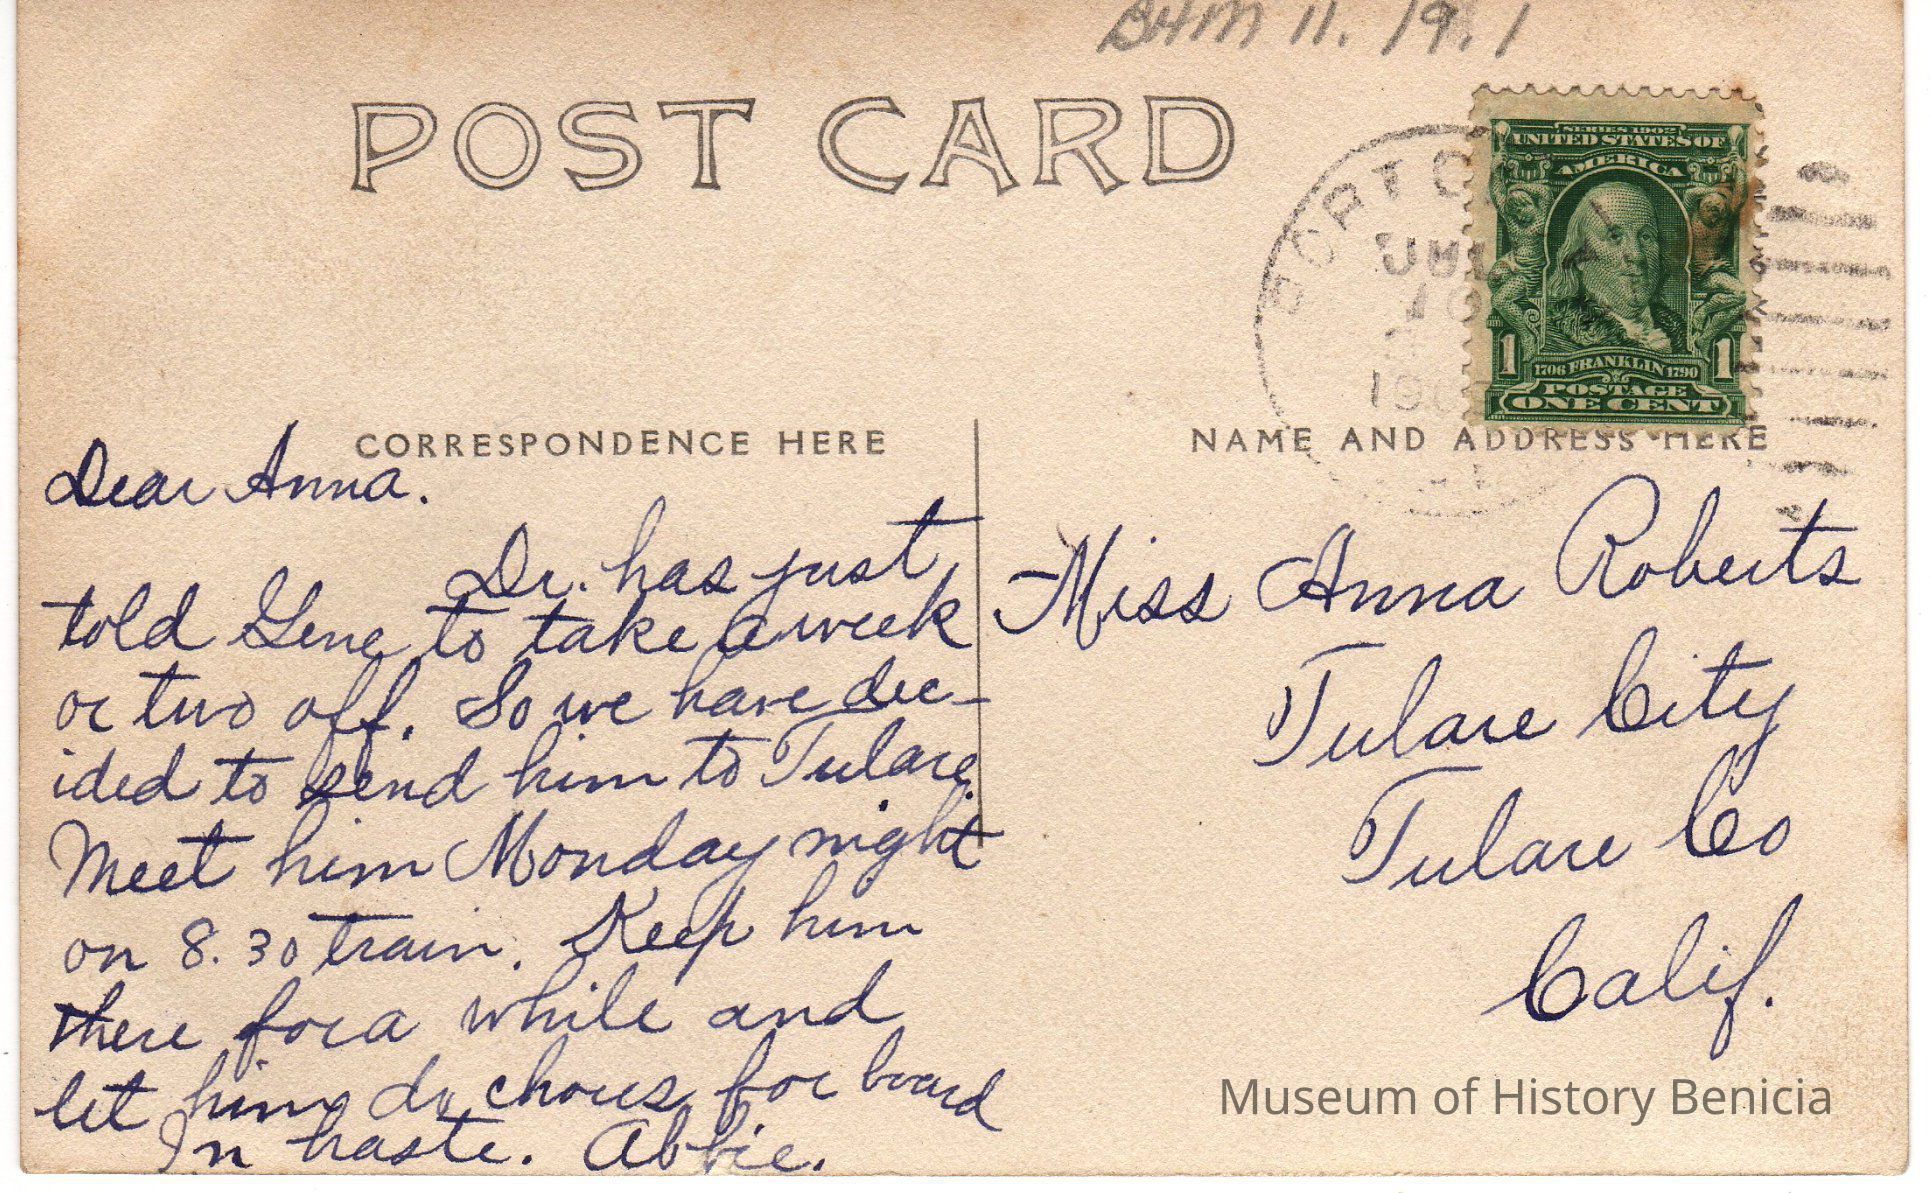 B4M 11.19.1
POST CARD
SERIES 1902
UNITED STATES OF
AMERICA
1 1706 FRANKLIN 1790 1
POSTAGE
ONE CENT
JUL
10
CORRESPONDENCE HERE
NAME AND ADDRESS HERE
Dear Anna.
Dr. has just
told Gene to take a week
or two off. So we have dec-
ided to send him to Tulare.
Meet him Monday night
on 8.30 train. Keep him
there for a while and
let him do chores for board
In haste. Abbie.
Miss Anna Roberts
Tulare City
Tulare Co
Calif.
Museum of History Benicia